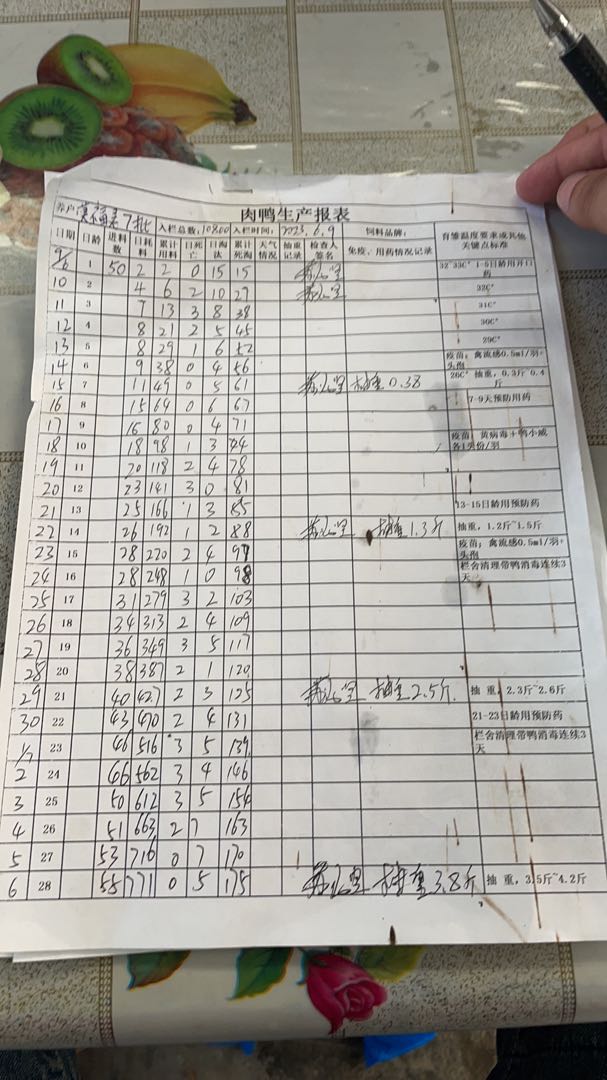 肉鸭生产报表
养户 7批 入栏总数:10800 入栏时间: 2023.6.9 饲料品牌:
日期 日龄 进料数 日耗料 累计用料 日死亡 日淘汰 累计死淘 天气情况 抽重记录 检查人签名 免疫、用药情况记录 育雏温度要求或其他关键点标准
9/6 1 50 2 2 0 15 15 32~33C° 1-5日龄用开口药
10 2 4 6 2 10 27 32C°
11 3 7 13 3 8 38 31C°
12 4 8 21 2 5 45 30C°
13 5 8 29 1 6 52 29C°
14 6 9 38 0 4 56 疫苗:禽流感0.5ml/羽+头孢
15 7 11 49 0 5 61 抽重0.38 26C° 抽重,0.3斤~0.4斤
16 8 15 64 0 6 67 7-9天预防用药
17 9 16 80 0 4 71
18 10 18 98 1 3 疫苗:黄病毒+鸭小减各1头份/羽
19 11 20 118 2 4 78
20 12 23 141 3 0 81
21 13 25 166 1 3 85 13-15日龄用预防药
22 14 26 192 1 2 88 抽重1.3斤 抽重,1.2斤~1.5斤
23 15 28 220 2 4 疫苗:禽流感0.5ml/羽+头孢
24 16 28 248 1 0 栏舍清理带鸭消毒连续3天
25 17 31 279 3 2 103
26 18 34 313 2 4 109
27 19 36 349 3 5 117
28 20 38 387 2 1 120
29 21 40 427 2 3 125 抽重2.5斤. 抽 重,2.3斤~2.6斤
30 22 43 470 2 4 131 21-23日龄用预防药
1/7 23 46 516 3 5 139 栏舍清理带鸭消毒连续3天
2 24 562 3 4 146
3 25 50 612 3 5 154
4 26 51 663 2 7 163
5 27 53 716 0 7 170
6 28 55 771 0 5 175 抽重3.8斤 抽 重,3.5斤~4.2斤